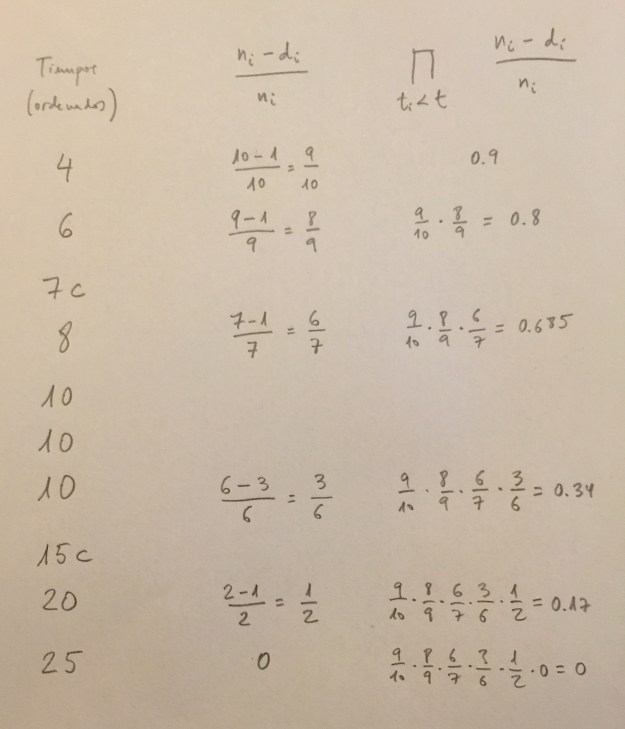 Tiempos (ordenados) | (n_i − d_i)/n_i | ∏ t_i<t (n_i − d_i)/n_i
4 | (10−1)/10 = 9/10 | 0.9
6 | (9−1)/9 = 8/9 | 9/10 · 8/9 = 0.8
7c
8 | (7−1)/7 = 6/7 | 9/10 · 8/9 · 6/7 = 0.685
10
10
10 | (6−3)/6 = 3/6 | 9/10 · 8/9 · 6/7 · 3/6 = 0.34
15c
20 | (2−1)/2 = 1/2 | 9/10 · 8/9 · 6/7 · 3/6 · 1/2 = 0.17
25 | 0 | 9/10 · 8/9 · 6/7 · 3/6 · 1/2 · 0 = 0